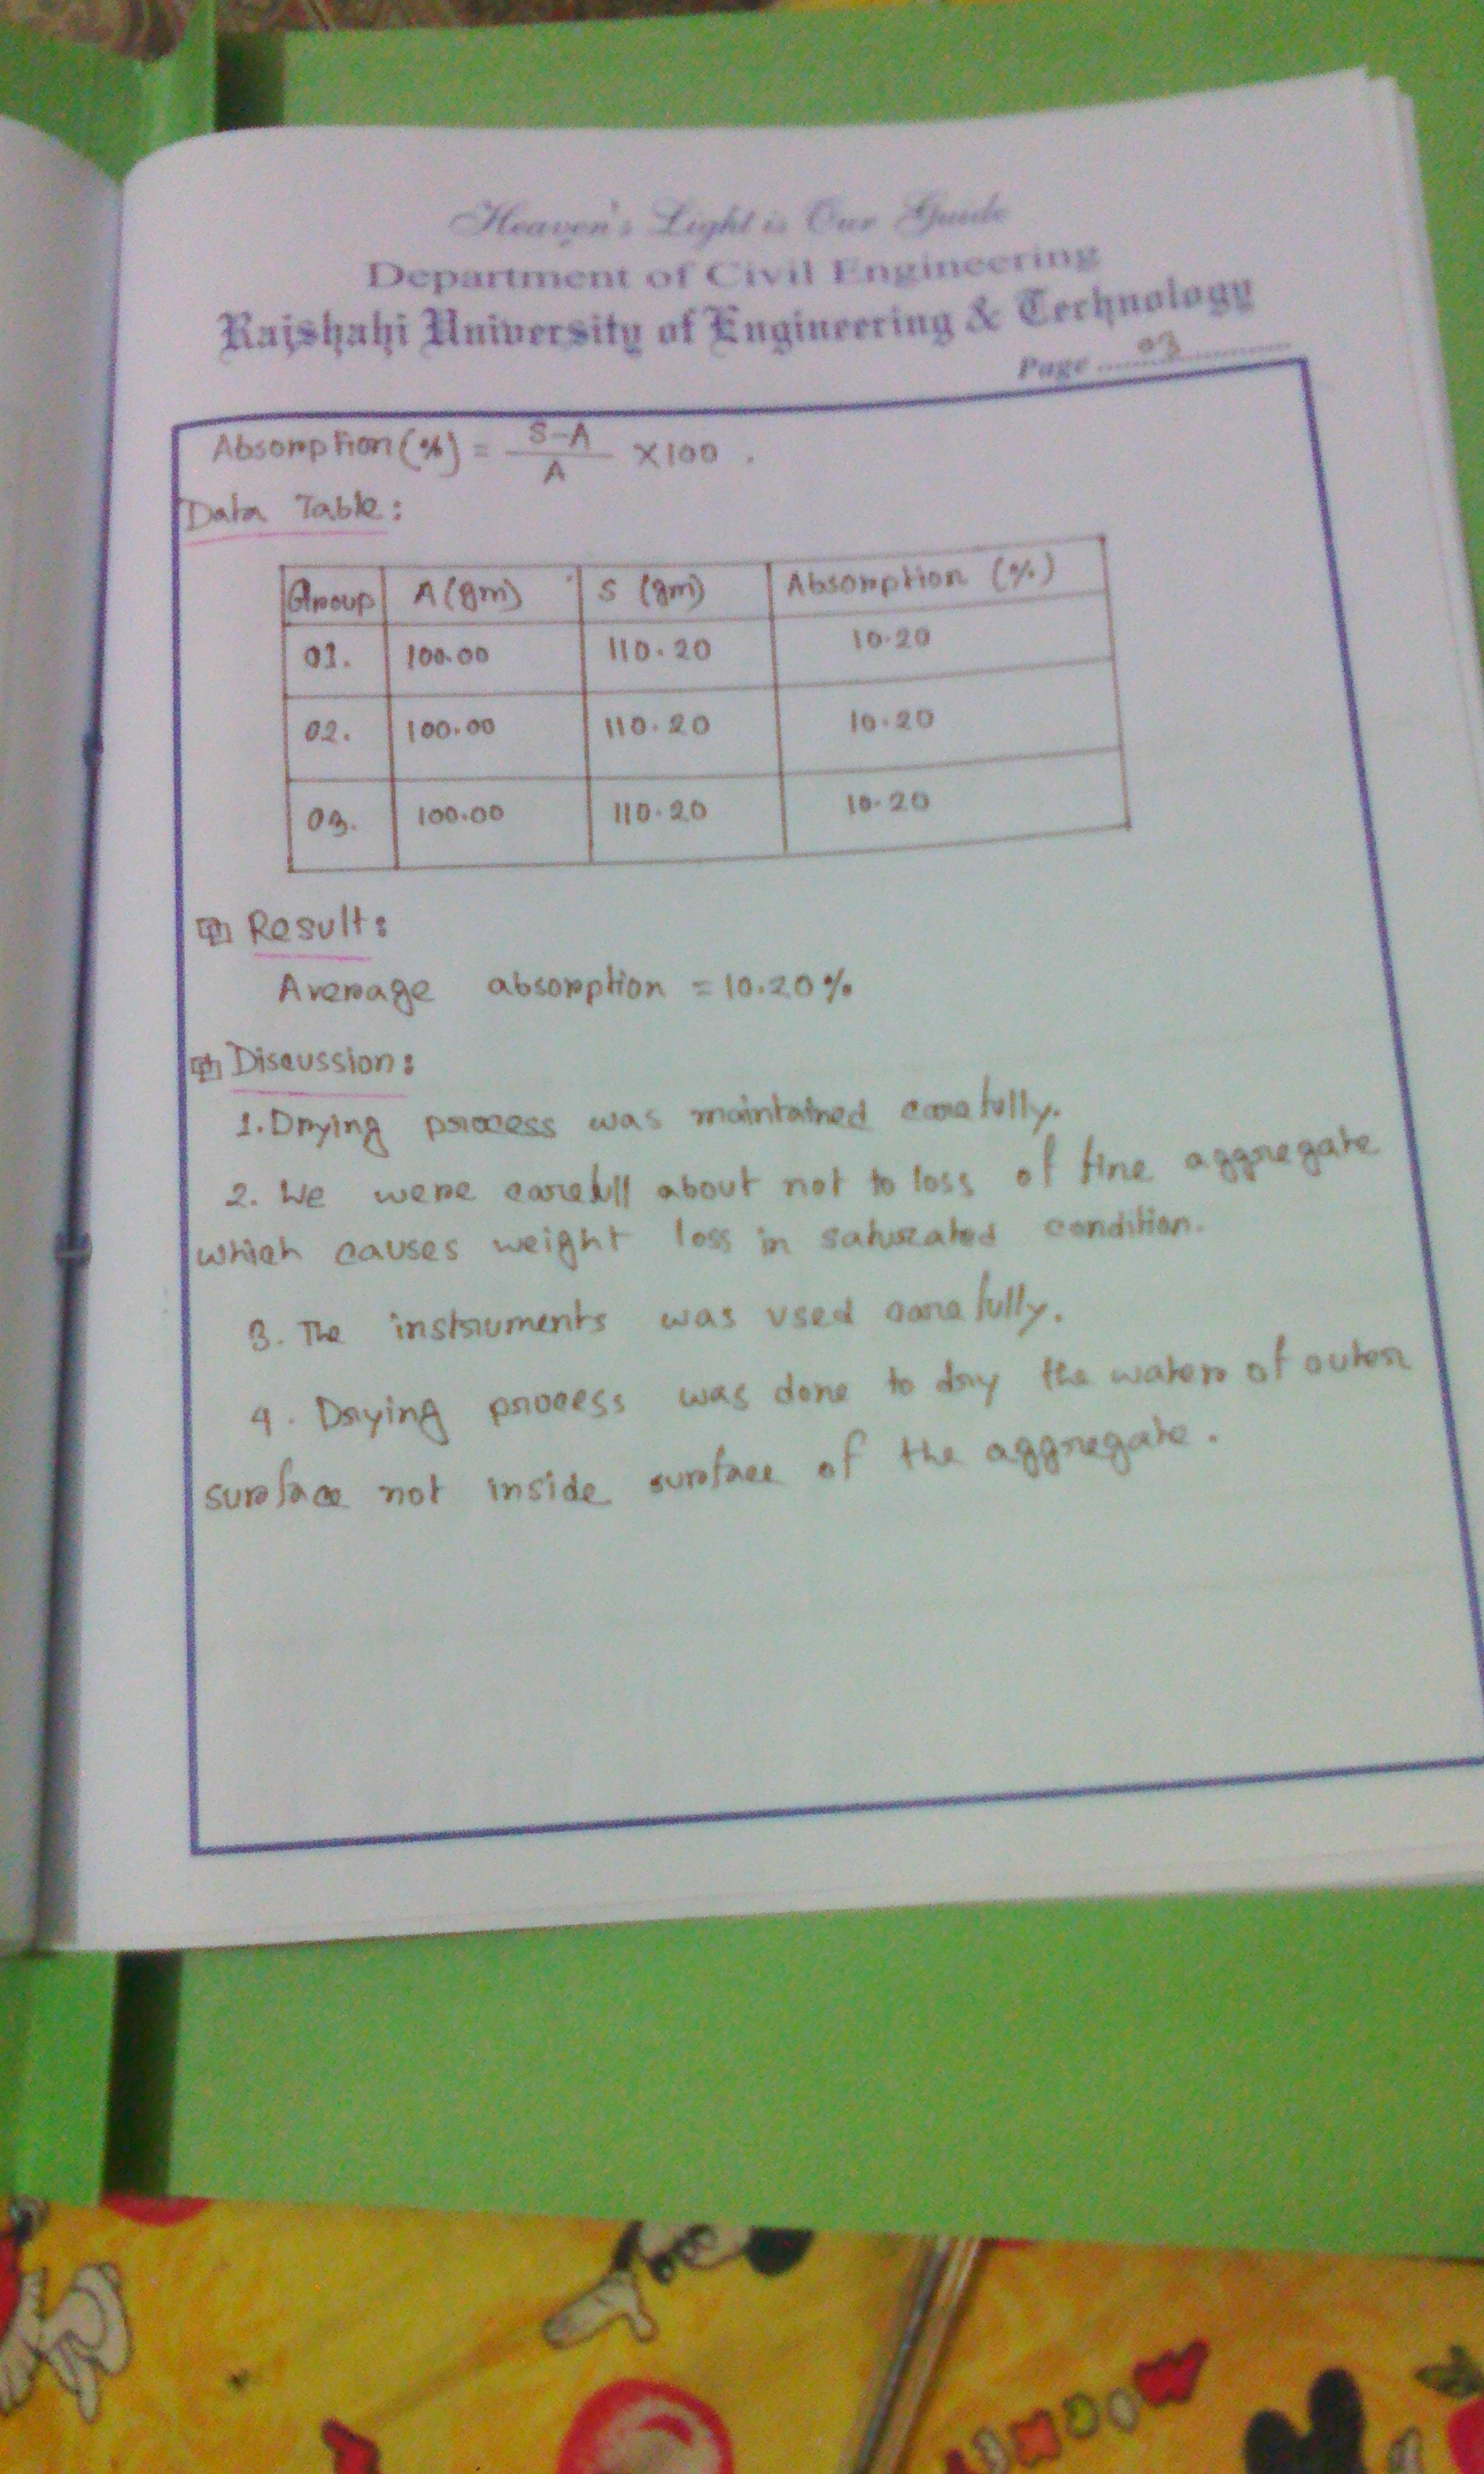 Heaven's Light is Our Guide
Department of Civil Engineering
Rajshahi University of Engineering & Technology
Page ........03................
Absorption (%) = S-A/A × 100 .
Data Table :
Group A (gm) S (gm) Absorption (%)
01. 100.00 110.20 10.20
02. 100.00 110.20 10.20
03. 100.00 110.20 10.20
Result :
Average absorption = 10.20%
Discussion :
1. Drying process was maintained carefully.
2. We were carefull about not to loss of fine aggregate
which causes weight loss in saturated condition.
3. The instruments was used carefully.
4. Drying process was done to dry the water of outer
surface not inside surface of the aggregate.